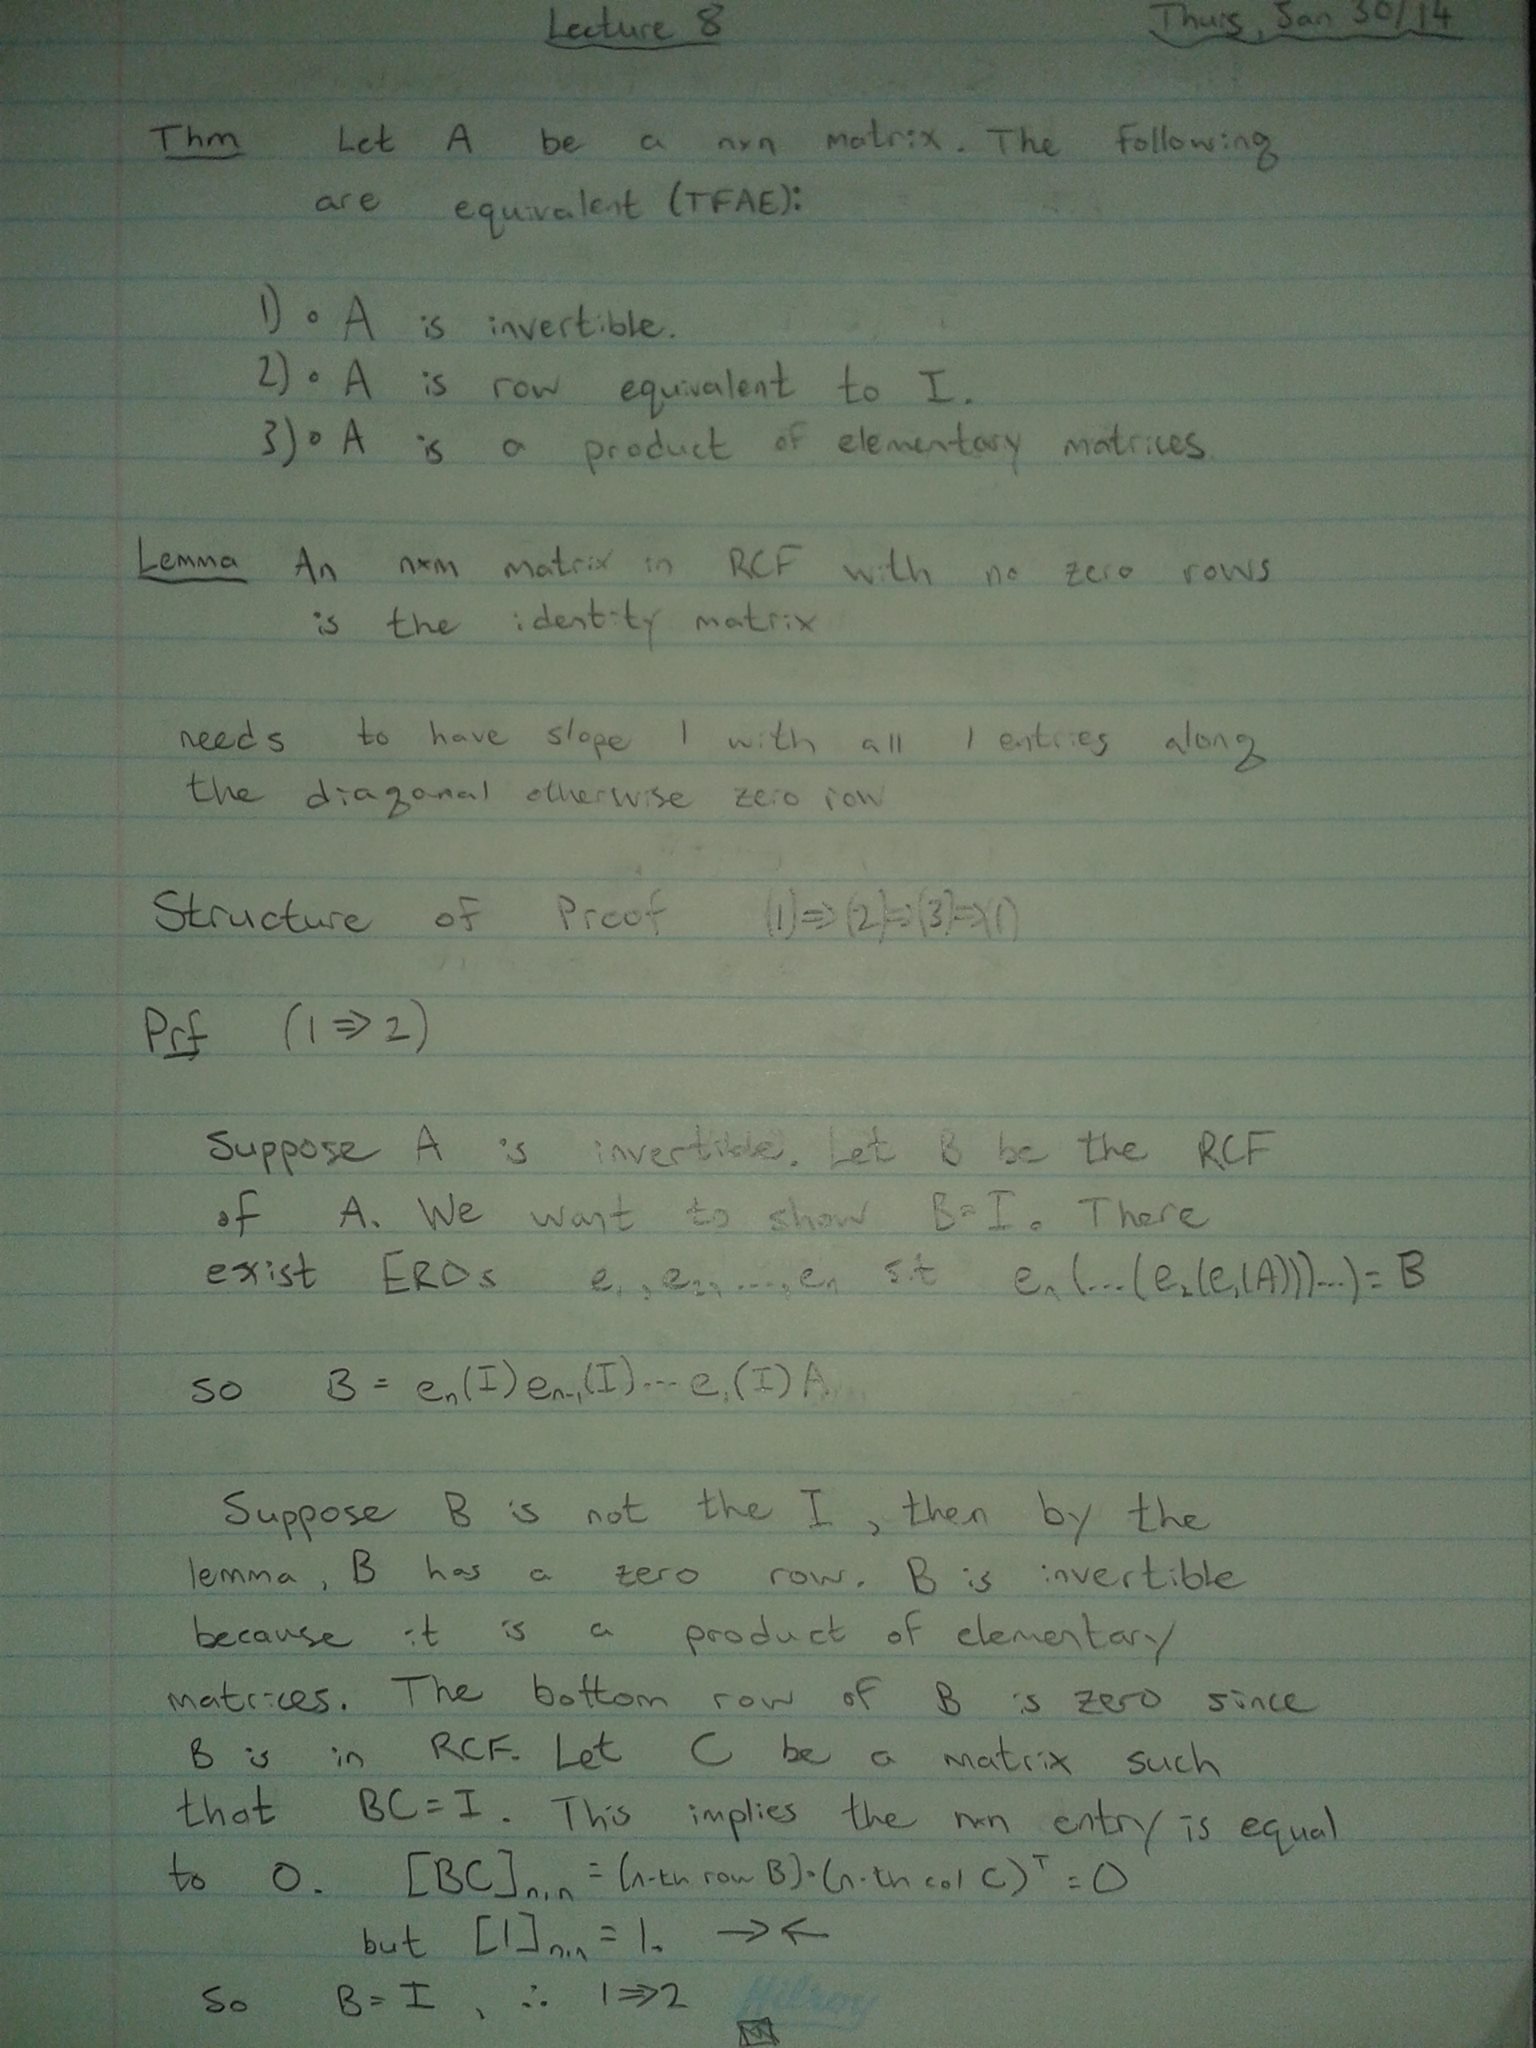 Lecture 8
Thurs, Jan 30/14
Thm Let A be a n×n matrix. The following
are equivalent (TFAE):
1) ∘ A is invertible.
2) ∘ A is row equivalent to I.
3) ∘ A is a product of elementary matrices.
Lemma An n×m matrix in RCF with no zero rows
is the identity matrix
needs to have slope 1 with all 1 entries along
the diagonal otherwise zero row
Structure of Proof (1)⇒(2)⇒(3)⇒(1)
Prf (1⇒2)
Suppose A is invertible. Let B be the RCF
of A. We want to show B=I. There
exist EROs e₁, e₂, ..., eₙ s.t eₙ(...(e₂(e₁(A)))...)=B
so B = eₙ(I)eₙ₋₁(I)...e₁(I)A
Suppose B is not the I, then by the
lemma, B has a zero row. B is invertible
because it is a product of elementary
matrices. The bottom row of B is zero since
B is in RCF. Let C be a matrix such
that BC=I. This implies the n×n entry is equal
to 0. [BC]ₙ,ₙ = (n-th row B)·(n-th col C)ᵀ = 0
but [I]ₙ,ₙ = 1. →←
So B=I, ∴ 1⇒2
Hilroy